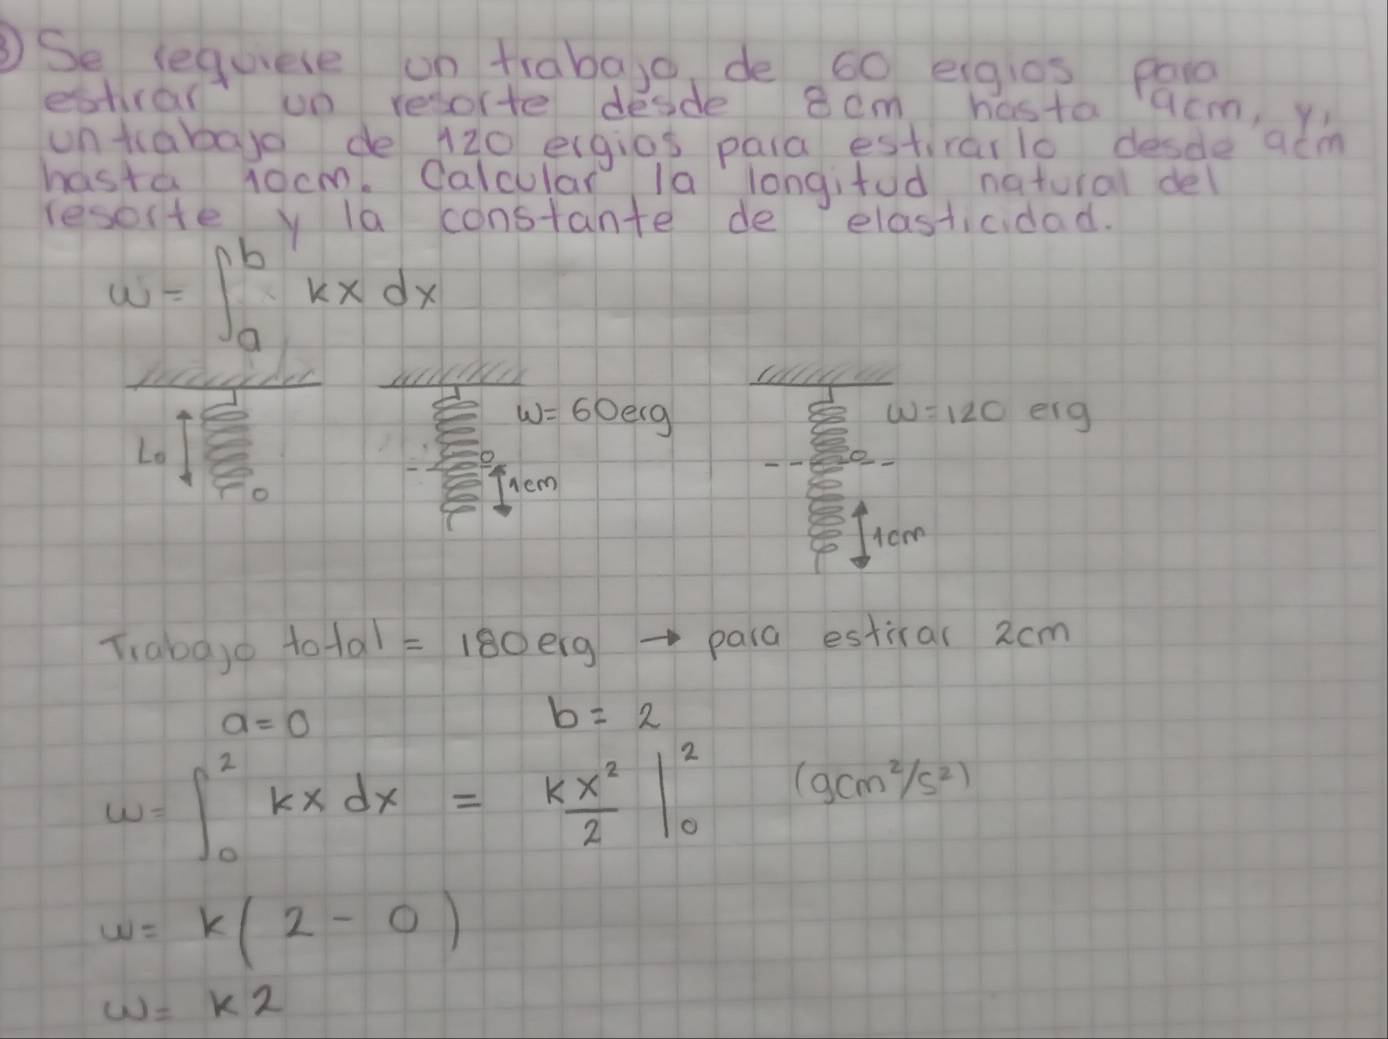 3) Se requiere un trabajo de 60 ergios para
estirar un resorte desde 8cm hasta 9cm, y,
un trabajo de 120 ergios para estirarlo desde 9cm
hasta 10cm. Calcular la longitud natural del
resorte y la constante de elasticidad.
w = ∫_a^b kx dx
L₀
0
w = 60erg
0
1cm
w = 120 erg
0
1cm
Trabajo total = 180erg → para estirar 2cm
a = 0 b = 2
w = ∫_0^2 kx dx = kx²/2 |_0^2 (gcm²/s²)
w = k(2 - 0)
w = k2